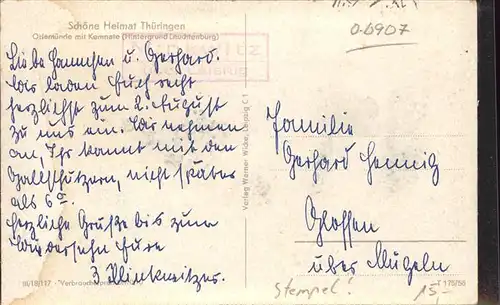 Schöne Heimat Thüringen
Orlamünde mit Kemnate (Hintergrund Leuchtenburg)
0-6907
Liebe Hannchen u. Gerhard.
Wir laden Euch recht
herzlichst zum 2. August
zu uns ein. Wir nehmen
an, Ihr kommt mit den
Gallschützern, nicht später
als 6°.
Herzliche Grüße bis zum
Wiedersehn Eure
3
Familie
Gerhard Hennig
Glossen
über Mügeln
Verlag Werner Wicke, Leipzig C 1
III/18/117 · Verbraucherpreis
T 175/58
Stempel!
15,-